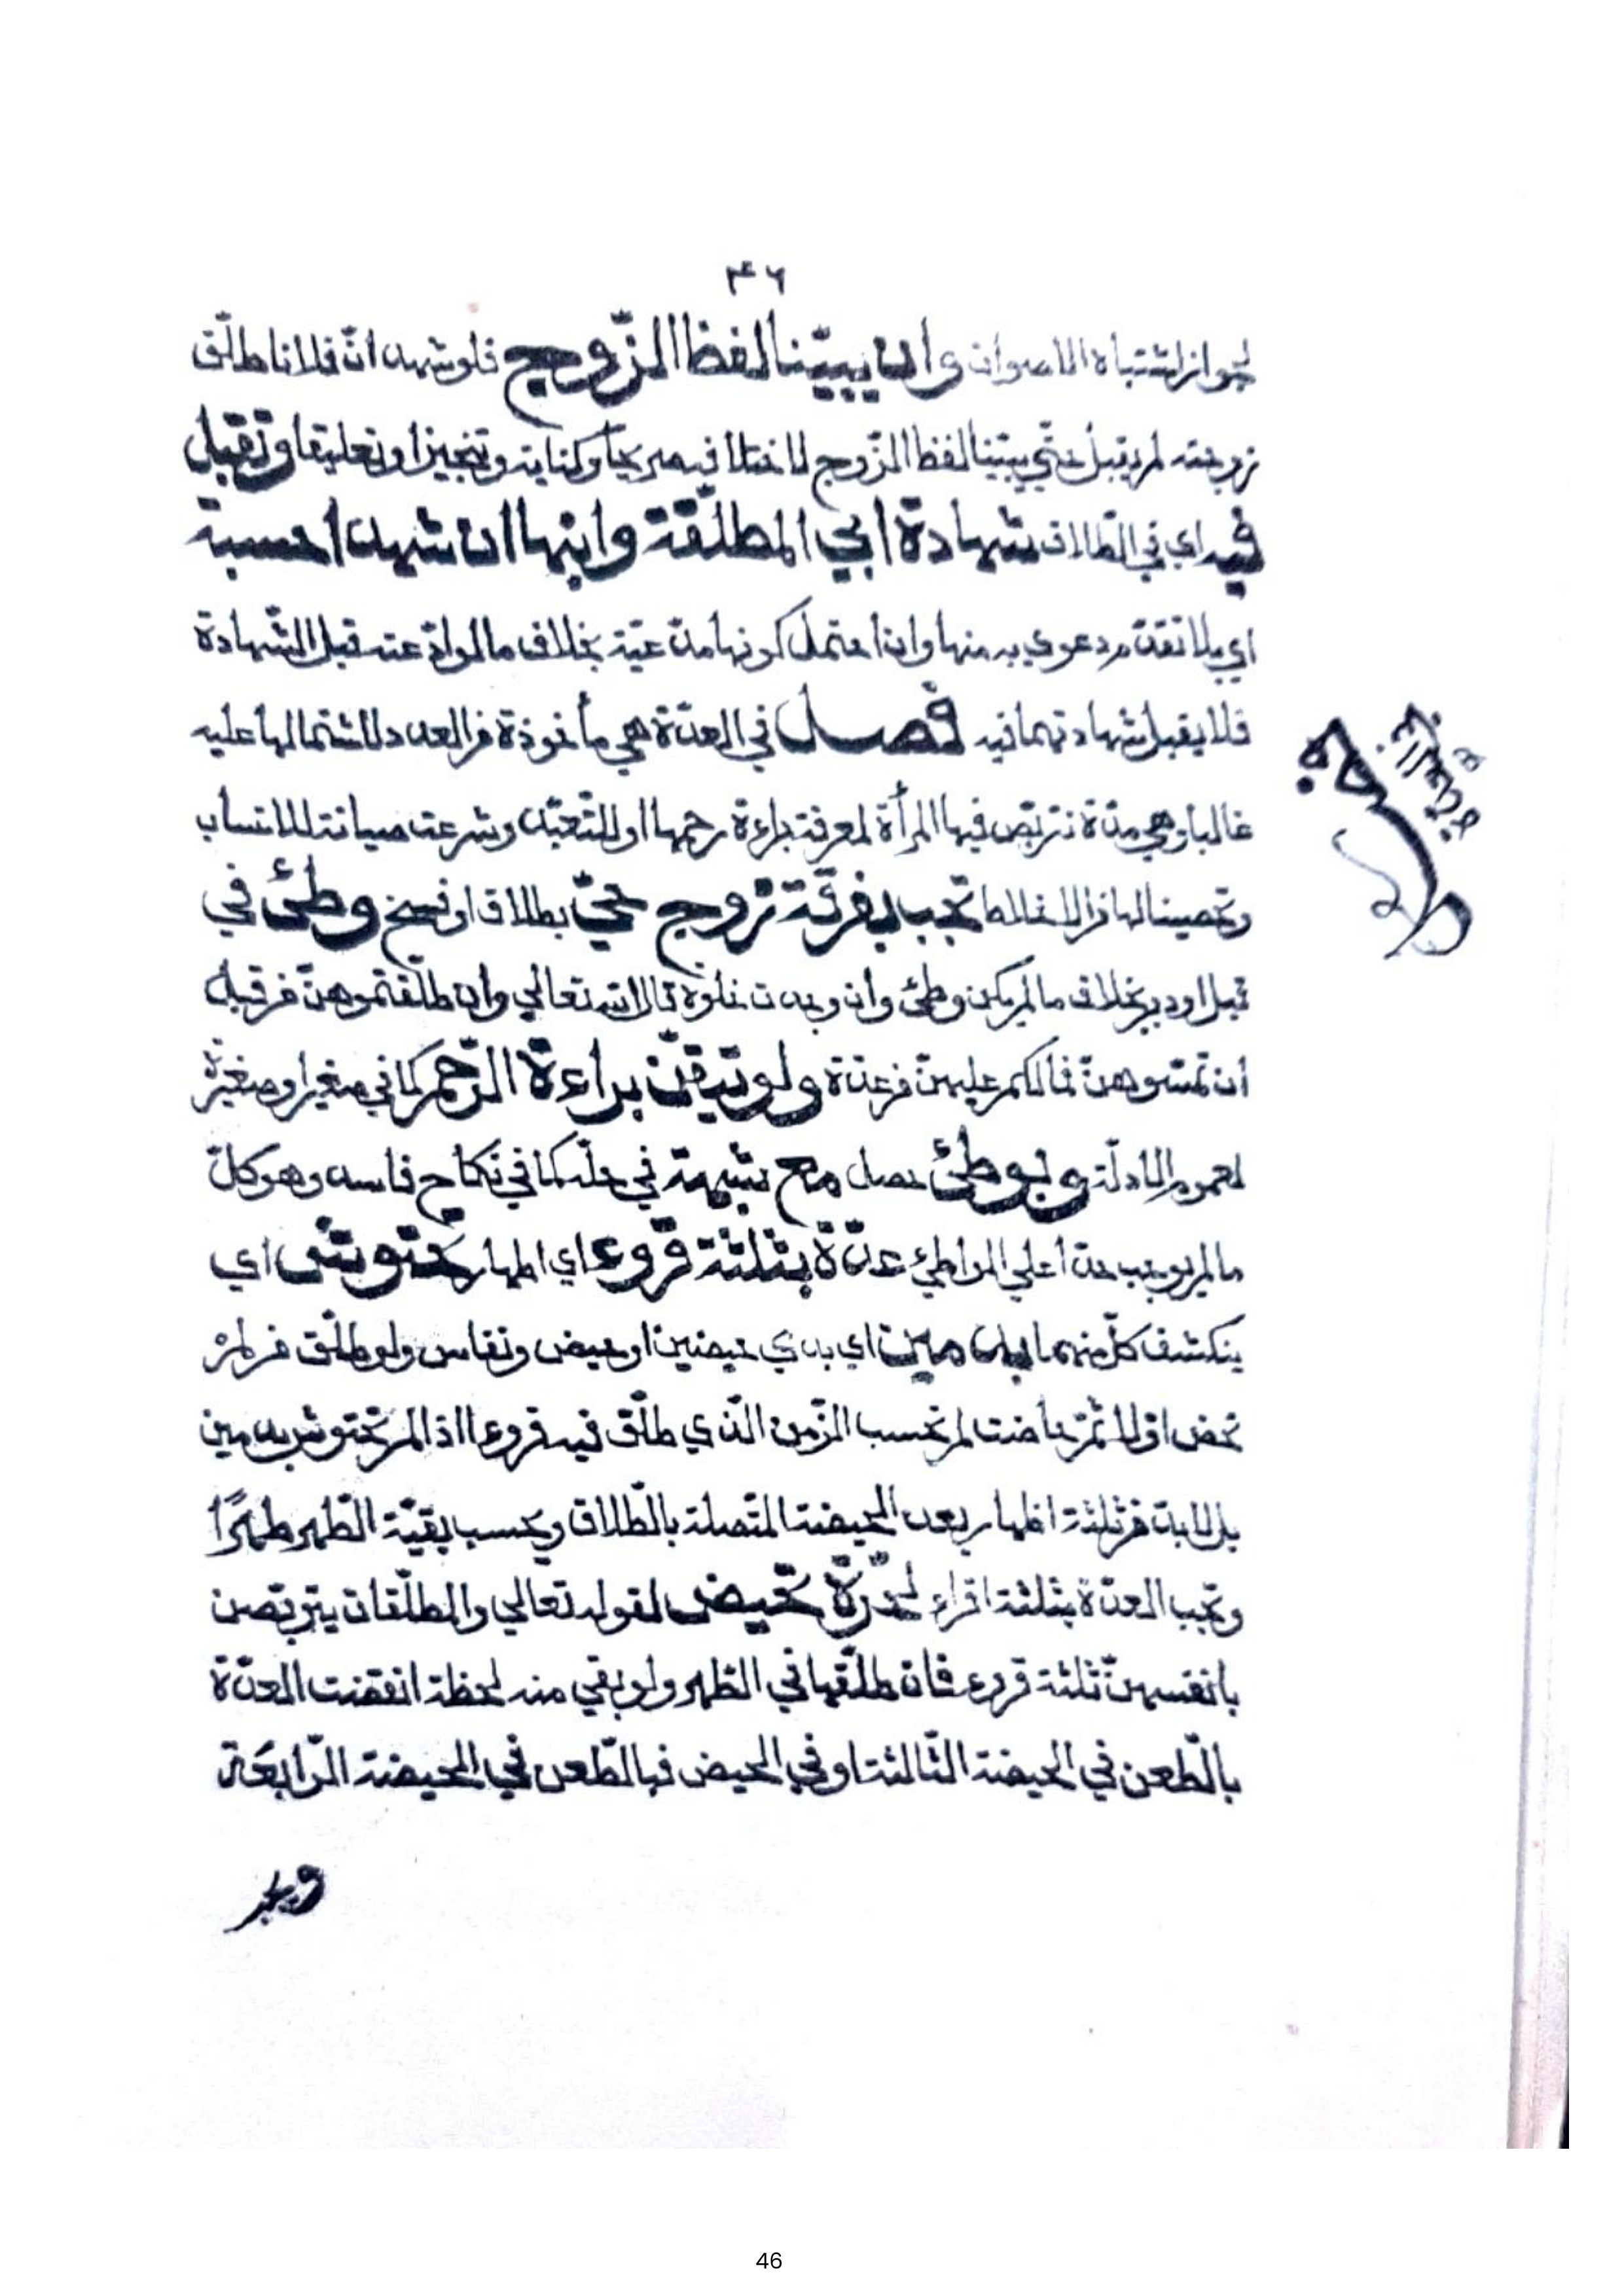 ٤٦
لجواز اشتباه الاصوات وان يبيّنا لفظ الزّوج فلو شهد انّ فلانا طلّق
زوجته لم يقبل حتّي يبيّنا لفظ الزّوج لاختلافه صريحا وكناية وتنجيزا وتعليقا وتقبل
فيه اي في الطّلاق شهادة ابي المطلّقة وابنها ان شهدا حسبة
اي بلا تقدّم دعوي به منها وان احتمل كونها مدّعيّة بخلاف ما لو ادّعته قبل الشّهادة
فلا يقبل شهادتهما فيه فصل في العدّة هي مأخوذة من العدد لاشتمالها عليه
غالبا وهي مدّة تتربّص فيها المرأة لمعرفة براءة رحمها او للتّعبّد وشرعت صيانة للانساب
وتحصينا لها من الاختلاط تجب بفرقة زوج حيّ بطلاق او فسخ وطئ في
قبل او دبر بخلاف ما لم يكن وطئ وان وجدت خلوة قال الله تعالي وان طلّقتموهنّ من قبل
أن تمسّوهنّ فما لكم عليهنّ من عدّة ولو تيقّن براءة الرّحم كما في صغير او صغيرة
لعموم الادلّة وبوطئ حصل مع شبهة في حلّه كما في نكاح فاسد وهو كلّ
ما لم يوجب حدّا علي الواطئ عدّة بثلثة قروء اي اطهار تحتوش اي
ينكشف كلّ منهما بدمين اي بدمي حيضين او حيض ونفاس ولو طلّق من لم
تحض اوّلا ثمّ حاضت لم تحسب الزّمن الّذي طلّق فيه قروءا اذ لم تحتوش بدمين
بل لا بدّ من ثلثة اطهار بعد الحيضة المتّصلة بالطّلاق ويحسب بقيّة الطّهر طهرًا
وتجب العدّة بثلثة اقراء لحرّة تحيض لقوله تعالي والمطلّقات يتربّصن
بانفسهنّ ثلثة قروء فان طلّقها في الطّهر ولو بقي منه لحظة انقضت العدّة
بالطّعن في الحيضة الثّالثة او في الحيض فبالطّعن في الحيضة الرّابعَة
46